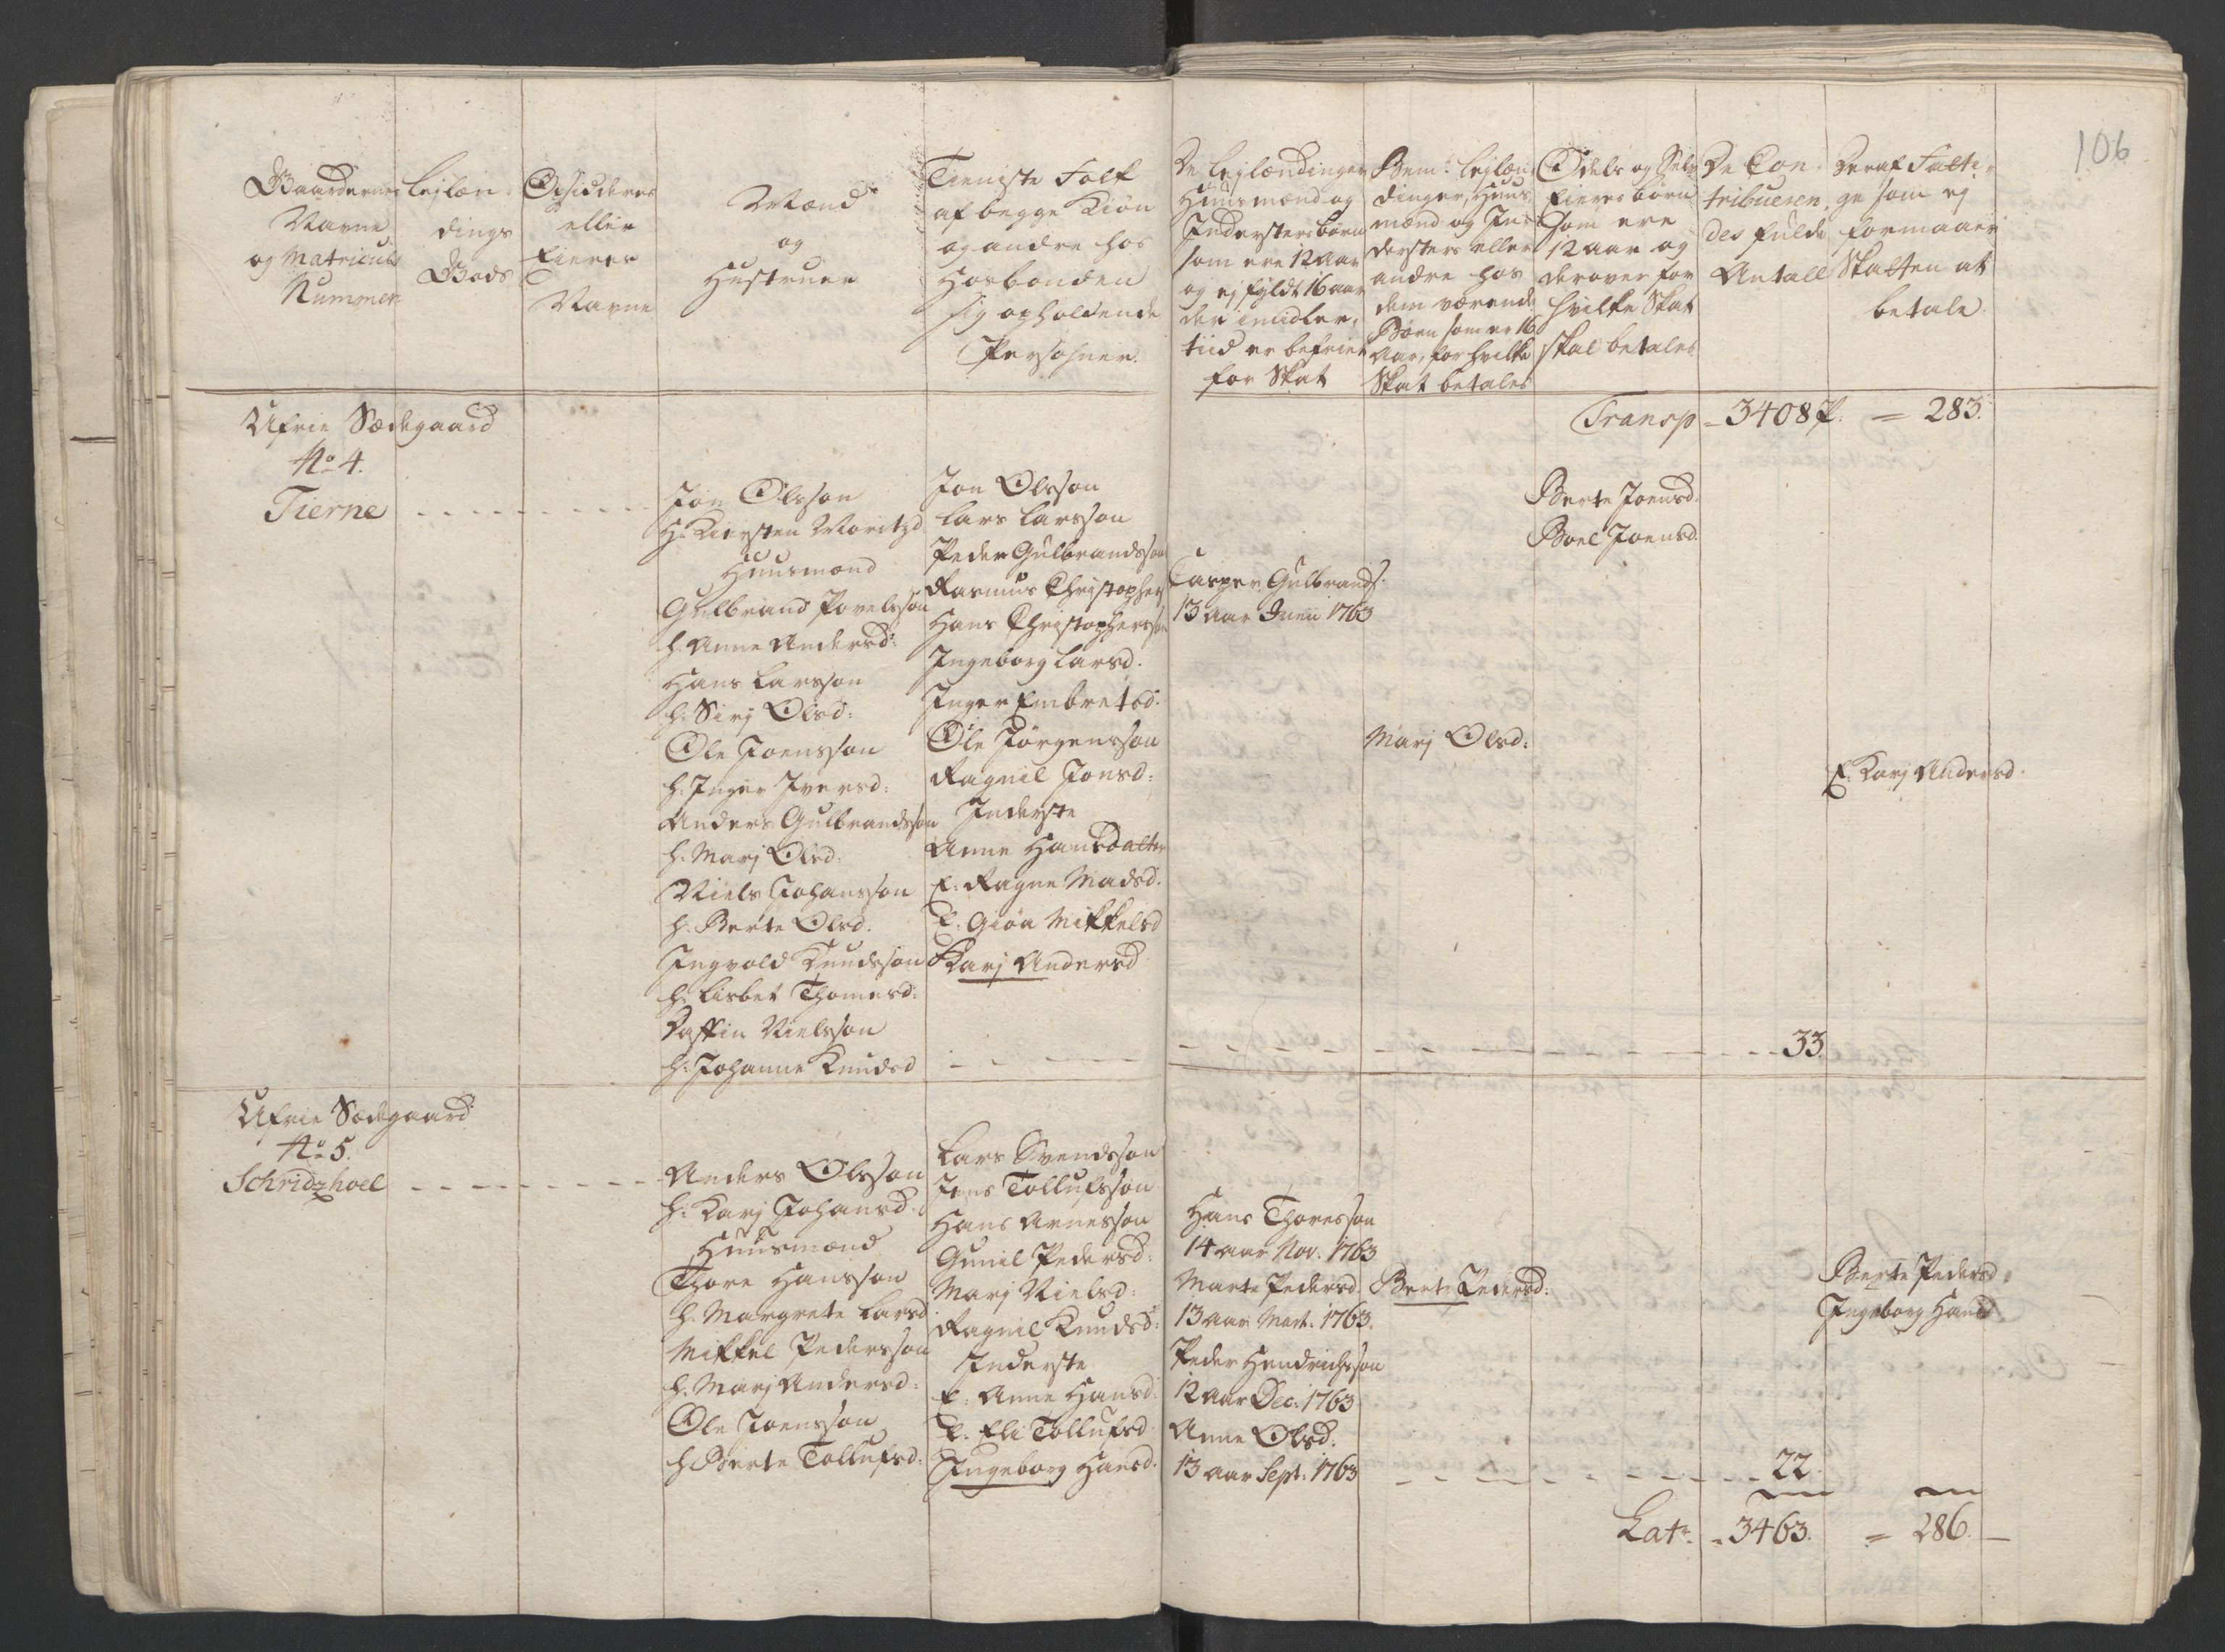 106
Gaardernes
Navne
og Matriculs
Nummer
Lejlæn-
dings
Gods
Opsidderes
eller
Eieres
Navne
Mænd
og
Hustruer
Tieniste Folk
af begge Kiøn
og andre hos
Hosbonden
sig opholdende
Persohner.
De Lejlændinger
Huusmænd og
Inderstersbørn
som ere 12 Aar
og ej fyldt 16 aar
der imidler-
tiid er befriet
for Skat
Bem: Lejlæn-
dinger, Huus-
mænd og In-
dersters eller
andre hos
dem værende
Børn som er 16
Aar, for hvilke
Skat betales
Odels og Selv
Eieres børn
som ere
12 aar og
derover for
hvilke Skat
skal betales
De Con-
tribueren-
des fulde
Antall
Deraf Fatti-
ge som ej
formaaer
Skatten at
betale
Ufrie Sædegaard
No 4.
Tierne
Transp - 3408 P. = 283.
Jon Olsson
H: Kiersten Moritzd
Huusmænd
Gulbrand Povelsson
h. Anne Andersd:
Hans Larsson
h: Sirj Olsd:
Ole Joensson
h: Inger Iversd:
Anders Gulbrandsson
h: Marj Olsd:
Niels Johansson
h: Berte Olsd:
Ingvold Knudsson
h: Lisbet Thomesd:
Taffin Nielsson
h: Johanne Knudsd
Jon Olsson
Lars Larsson
Peder Gulbrandsson
Rasmus Christophers
Hans Christophersson
Ingeborg Larsd.
Inger Embretsd:
Ole Jørgensson
Ragnil Jonsd:
Inderste
Anne Hansdatter
E: Ragne Madsd.
E: Giøa Mikkelsd
Karj Andersd
Casper Gulbrands.
13 Aar Juni 1763
Marj Olsd:
Berte Joensd.
Boel Joensd.
E: Karj Andersd.
33.
Ufrie Sædegaard
No 5.
Schridzhoel
Anders Olsson
h: Karj Johansd.
Huusmænd
Thore Hansson
h. Margrete Larsd
Mikkel Pedersson
h. Marj Andersd:
Ole Joensson
h Berte Tollufsd:
Lars Svendsson
Jens Tollufsson
Hans Arnesson
Gunil Pedersd:
Marj Nielsd:
Ragnil Knudsd:
Inderste
E: Anne Hansd:
E: Eli Tollufsd
Ingeborg Hansd.
Hans Thoresson
14 aar Nov. 1763
Marte Pedersd
13 aar Mart. 1763.
Peder Hendrichsson
12 Aar Dec. 1763
Anne Olsd:
13 aar Sept. 1763
Berte Pedersd:
Berte Pedersd
Ingeborg Hansd
22.
Latr. - 3463. = 286.